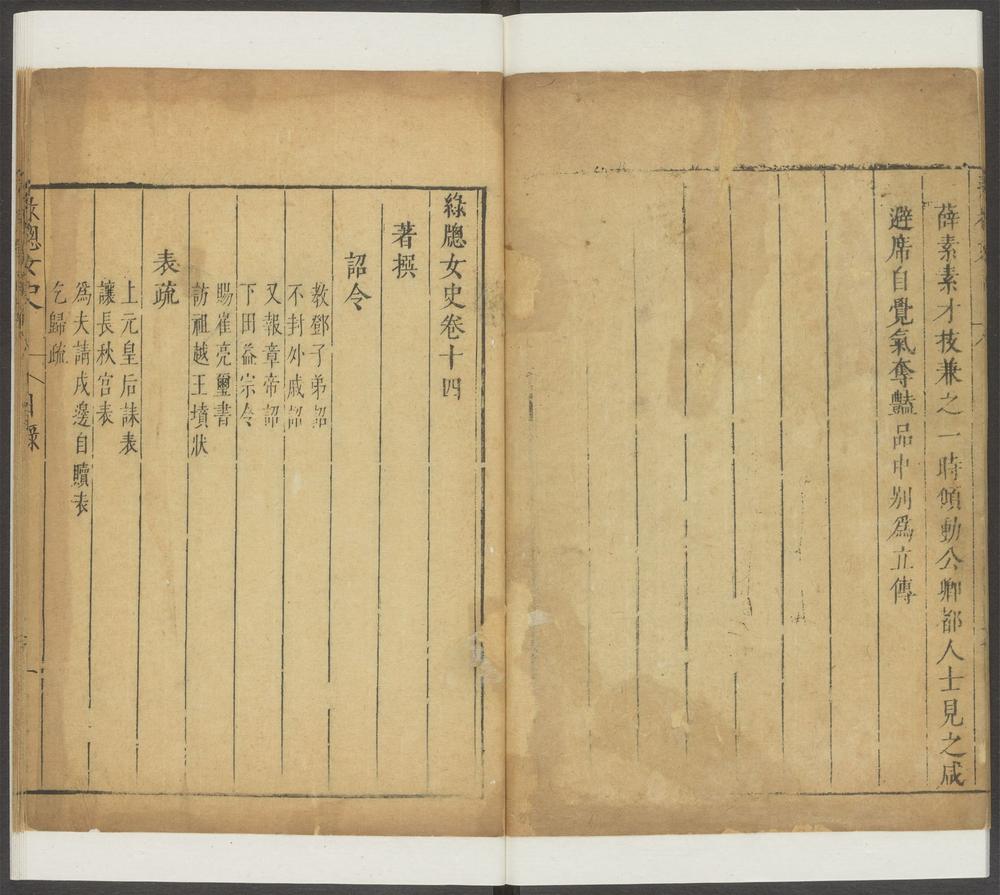 薛素素才技兼之一時傾動公卿都人士見之咸
避席自覺氣奪豔品中別爲立傳
綠牕女史卷十四
著撰
詔令
敎鄧子弟詔
不封外戚詔
又報章帝詔
下田益宗令
賜崔亮璽書
訪祖越王墳狀
表疏
上元皇后誄表
讓長秋宮表
爲夫請戍邊自贖表
乞歸疏
綠牕女史
目錄
一